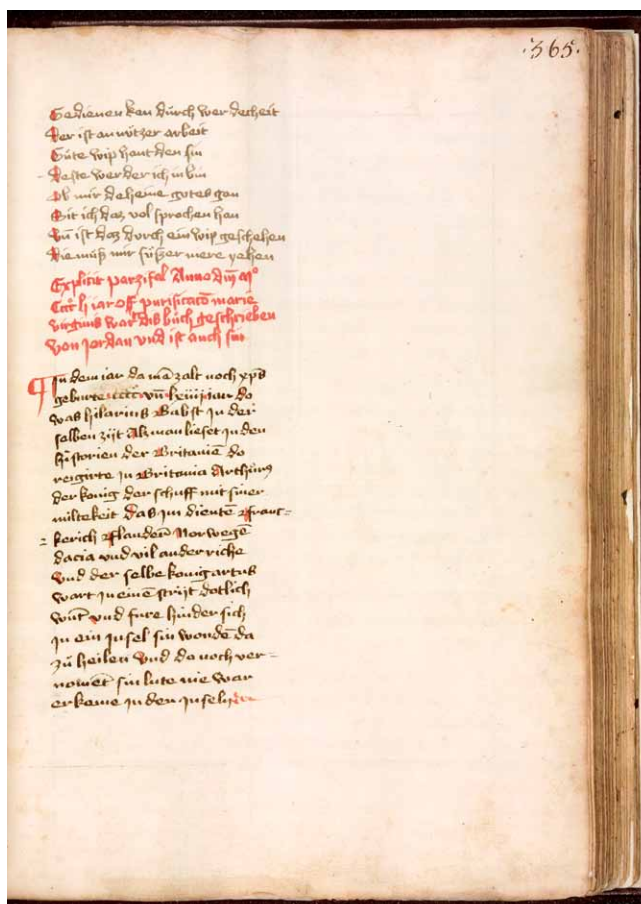 .365.
Gedienen ken durch wer decheit
Der ist an nützer arbeit
Güte wip hant den sin
Deste wer der ich in bin
Ob mir deheine gotes gan
Sit ich daz vol sprochen han
Vn̄ ist daz durch ein wip geschehen
Die muß mir süszer mere yehen
Explicit parzifal Anno dm̄ Mº
CCCC li iar off purificatō marie
virginis war dis büch geschrieben
von Jordan vnd ist auch sin
In dem iar da mā zalt noch xp̄s
geburte cccc vn̄ lxiiii iar do
was hilarius Babst In der
selben zijt Alz man lieset in den
historien der Britaniē do
reigirte in Britania Arthurꝰ
der konig der schuff mit siner
miltekeit das im dientē Franc-
kerich Flandern̄ Norwegē
dacia vnd vil ander riche
Vnd der selbe konig artus
wart in einē strijt dotlich
wūt vnd fure hinder sich
In ein Insel sin wondē da
zü heilen Vnd do noch ver-
nomēt sin lute nie war
er keme in den Inseln